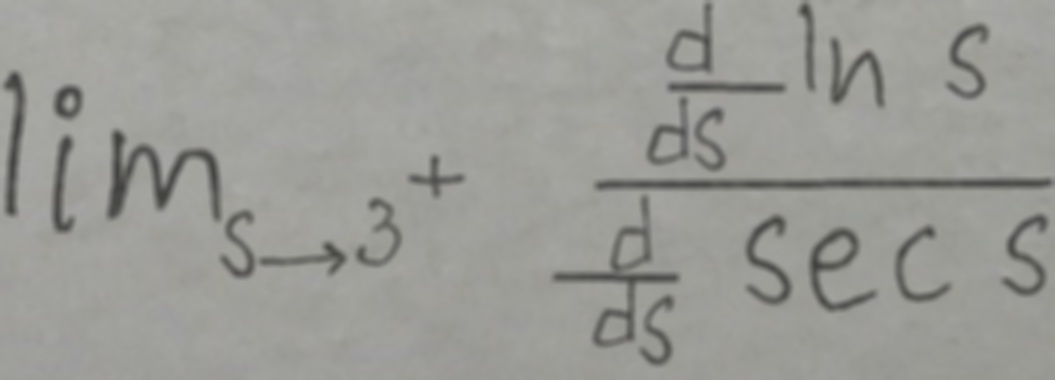 \lim_{s \to 3^+} \frac{\frac{d}{ds} \ln s}{\frac{d}{ds} \sec s}